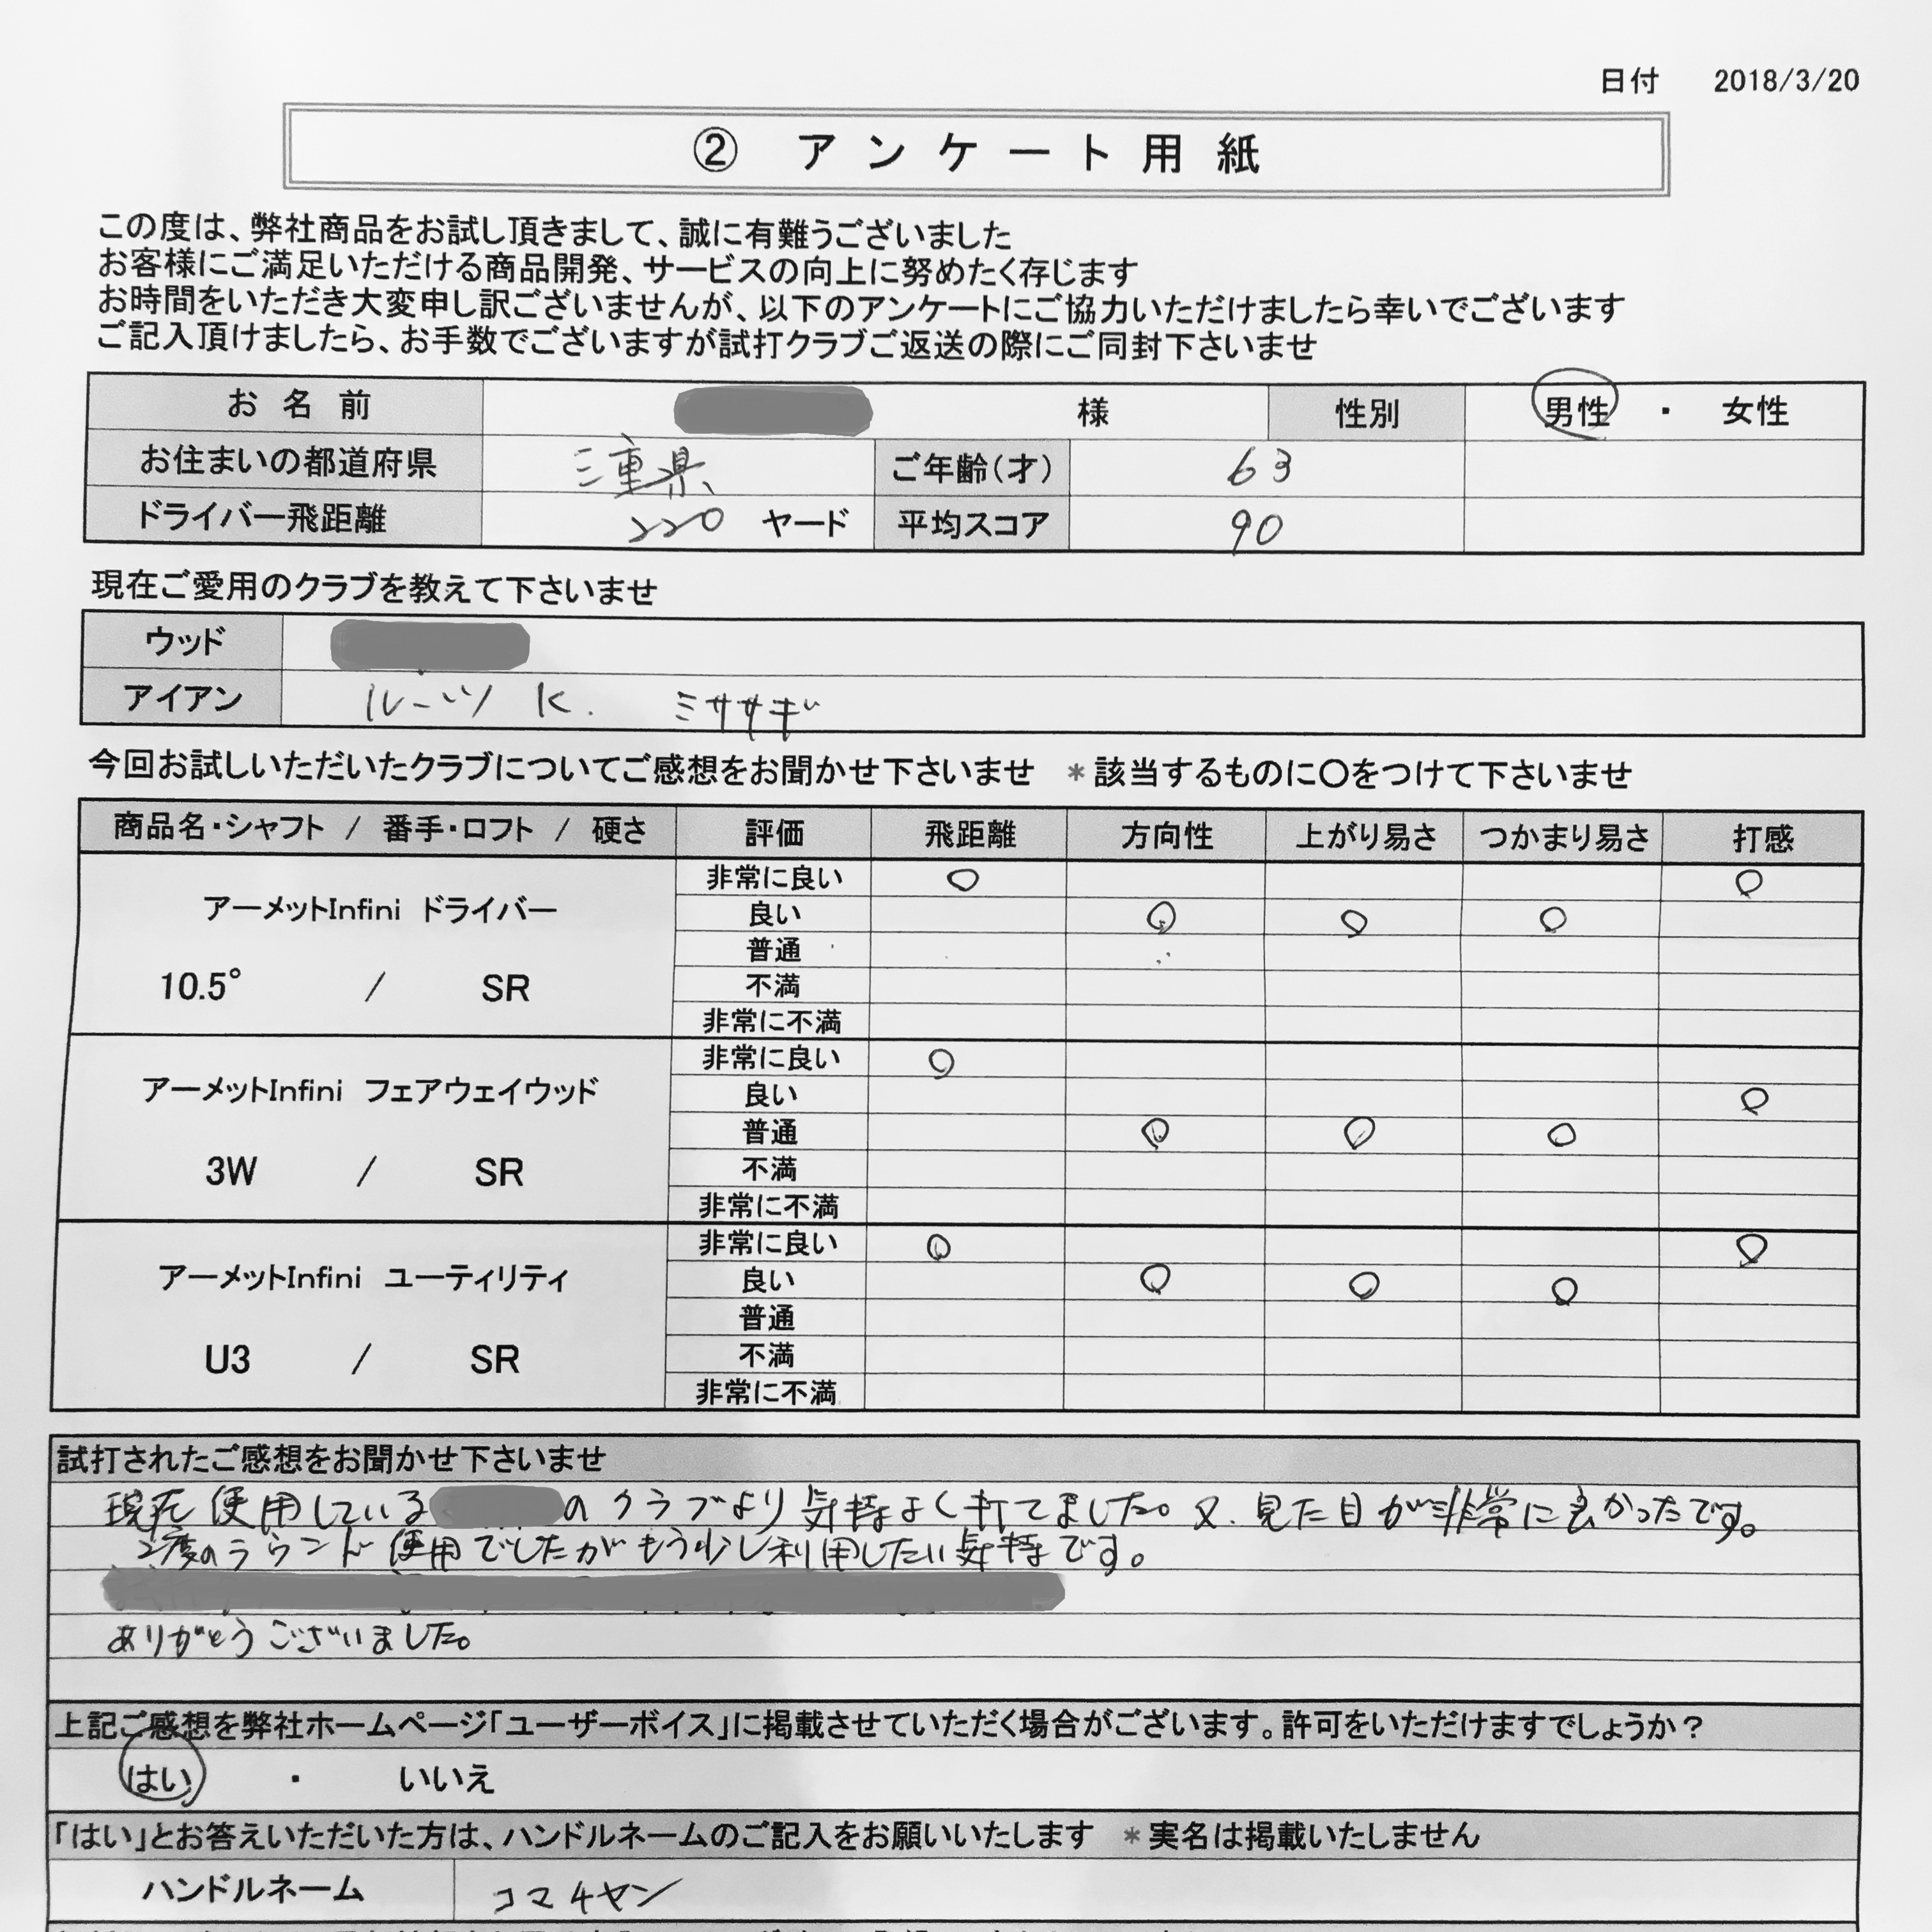 日付 2018/3/20
② アンケート用紙
この度は、弊社商品をお試し頂きまして、誠に有難うございました
お客様にご満足いただける商品開発、サービスの向上に努めたく存じます
お時間をいただき大変申し訳ございませんが、以下のアンケートにご協力いただけましたら幸いでございます
ご記入頂けましたら、お手数でございますが試打クラブご返送の際にご同封下さいませ
お名前 様 性別 男性 ・ 女性
お住まいの都道府県 三重県 ご年齢(才) 63
ドライバー飛距離 220 ヤード 平均スコア 90
現在ご愛用のクラブを教えて下さいませ
ウッド
アイアン ルーツ K. ミササギ
今回お試しいただいたクラブについてご感想をお聞かせ下さいませ *該当するものに〇をつけて下さいませ
商品名・シャフト / 番手・ロフト / 硬さ 評価 飛距離 方向性 上がり易さ つかまり易さ 打感
アーメットInfini ドライバー
10.5° / SR
非常に良い 〇 〇
良い 〇 〇 〇
普通
不満
非常に不満
アーメットInfini フェアウェイウッド
3W / SR
非常に良い 〇
良い 〇
普通 〇 〇 〇
不満
非常に不満
アーメットInfini ユーティリティ
U3 / SR
非常に良い 〇 〇
良い 〇 〇 〇
普通
不満
非常に不満
試打されたご感想をお聞かせ下さいませ
現在使用している のクラブより気持よく打てました。又、見た目が非常に良かったです。
2度のラウンド使用でしたがもう少し利用したい気持です。
ありがとうございました。
上記ご感想を弊社ホームページ「ユーザーボイス」に掲載させていただく場合がございます。許可をいただけますでしょうか？
はい ・ いいえ
「はい」とお答えいただいた方は、ハンドルネームのご記入をお願いいたします *実名は掲載いたしません
ハンドルネーム コマチャン